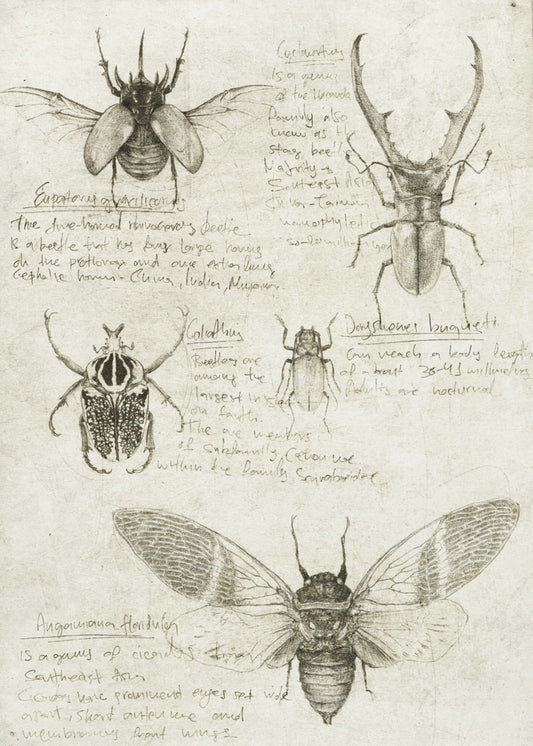 Eupatorus gracilicornis
The five-horned rhinoceros beetle
Is a beetle that has four large horns
on the prothorax and one extra long
Cephalic horn - China, India, Myanmar.
Cyclommatus
Is a genus
of the Lucanidae
family also
known as the
stag beetle
Majority
Southeast Asia
Goliathus
Beetles are
among the
largest insects
on Earth.
The are members
of subfamily Cetoniinae
within the family, Scarabaeidae
Can reach a body length
of about 38-41 millimeters
Adults are nocturnal
Angamiana floridula
Is a genus of cicadas from
Southeast Asia
Cicadas have prominent eyes set wide
apart, short antennae and
membranous front wings